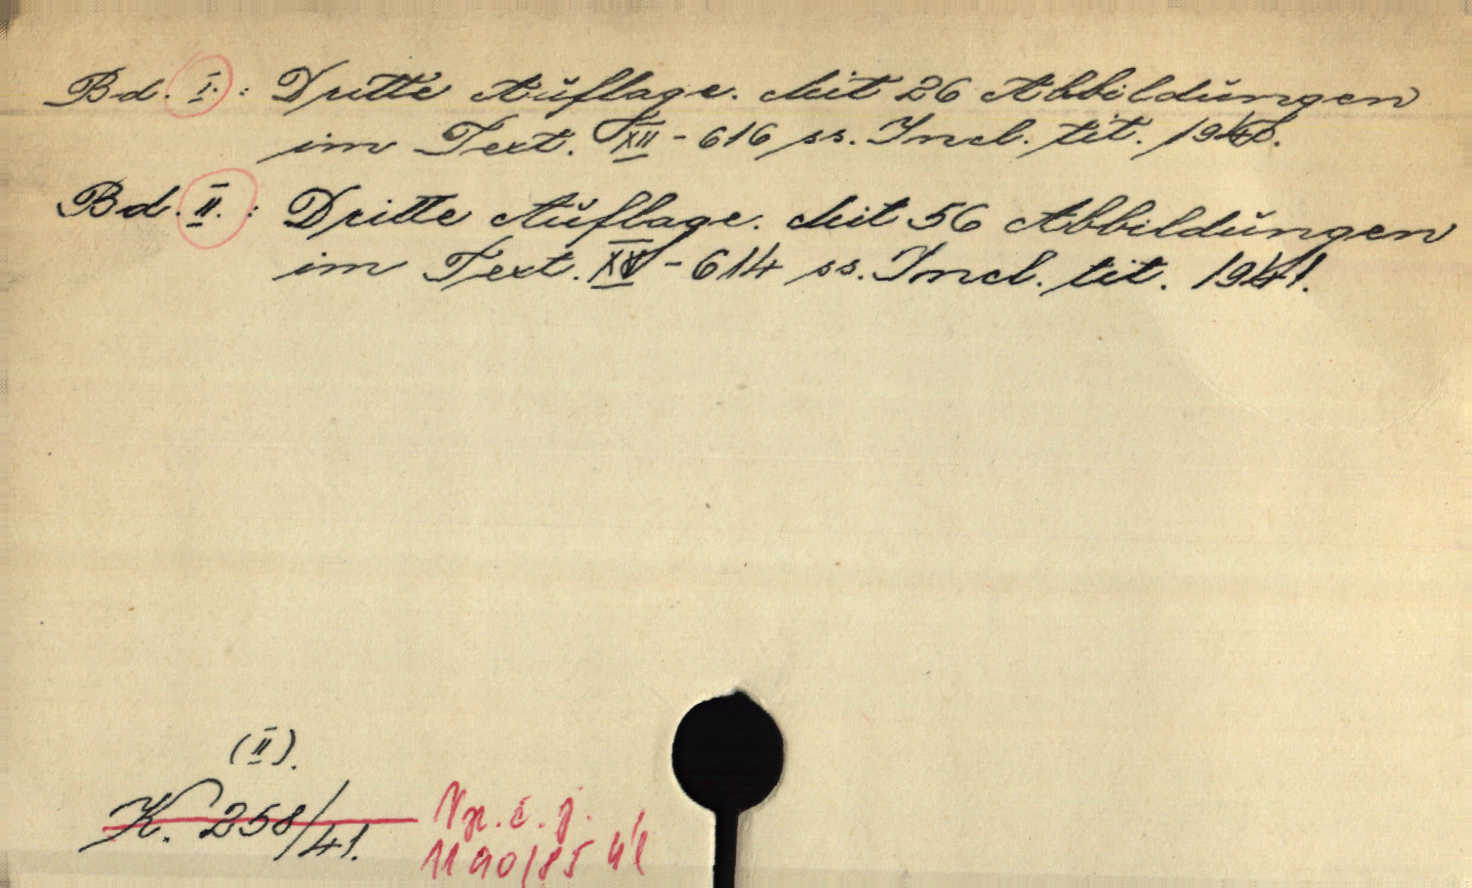 Bd. I. : Dritte Auflage. Mit 26 Abbildungen
im Text. XII - 616 ss. Incl. tit. 1940.
Bd. II. : Dritte Auflage. Mit 56 Abbildungen
im Text. XV - 614 ss. Incl. tit. 1941.
(II).
K. 258/41.
č. j.
1190/85